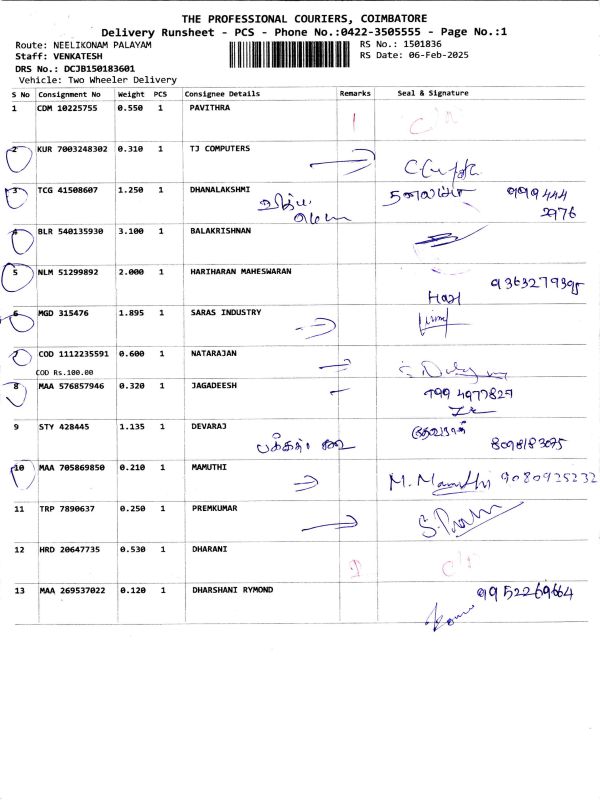 THE PROFESSIONAL COURIERS, COIMBATORE
Delivery Runsheet - PCS - Phone No.:0422-3505555 - Page No.:1
Route: NEELIKONAM PALAYAM RS No.: 1501836
Staff: VENKATESH RS Date: 06-Feb-2025
DRS No.: DCJB150183601
Vehicle: Two Wheeler Delivery
S No Consignment No Weight PCS Consignee Details Remarks Seal & Signature
1 CDM 10225755 0.550 1 PAVITHRA
2 KUR 7003248302 0.310 1 TJ COMPUTERS
3 TCG 41508607 1.250 1 DHANALAKSHMI 999444
2976
4 BLR 540135930 3.100 1 BALAKRISHNAN
5 NLM 51299892 2.000 1 HARIHARAN MAHESWARAN
Hari
6 MGD 315476 1.895 1 SARAS INDUSTRY
7 COD 1112235591 0.600 1 NATARAJAN
COD Rs.100.00
8 MAA 576857946 0.320 1 JAGADEESH
9 STY 428445 1.135 1 DEVARAJ
10 MAA 705869850 0.210 1 MAMUTHI M. Mamuthi 9080925232
11 TRP 7890637 0.250 1 PREMKUMAR
12 HRD 20647735 0.530 1 DHARANI
13 MAA 269537022 0.120 1 DHARSHANI RYMOND 9952269664